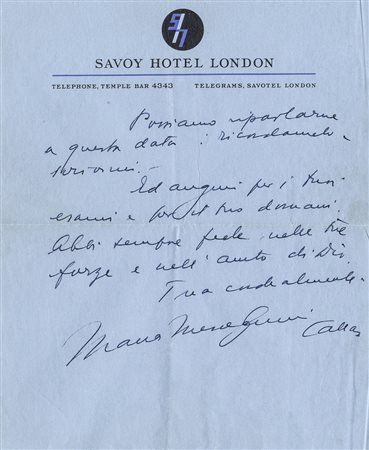 SAVOY HOTEL LONDON
TELEPHONE, TEMPLE BAR 4343 TELEGRAMS, SAVOTEL LONDON
Possiamo riparlarne
a questa data : ricordamelo -
scrivimi. -
Ed auguri per i tuoi
esami e per il tuo domani.
Abbi sempre fede nelle tue
forze e nell'aiuto di Dio
Tua cordialmente -
Maria Meneghini Callas